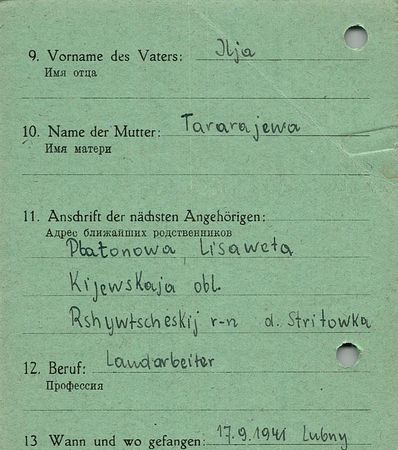 9. Vorname des Vaters: Ilja
Имя отца
10. Name der Mutter: Tararajewa
Имя матери
11. Anschrift der nächsten Angehörigen:
Адрес ближайших родственников
Platonowa Lisaweta
Kijewskaja obl.
Rshywtscheskij r-n d. Stritowka
12. Beruf: Landarbeiter
Профессия
13 Wann und wo gefangen: 17.9.1941 Lubny